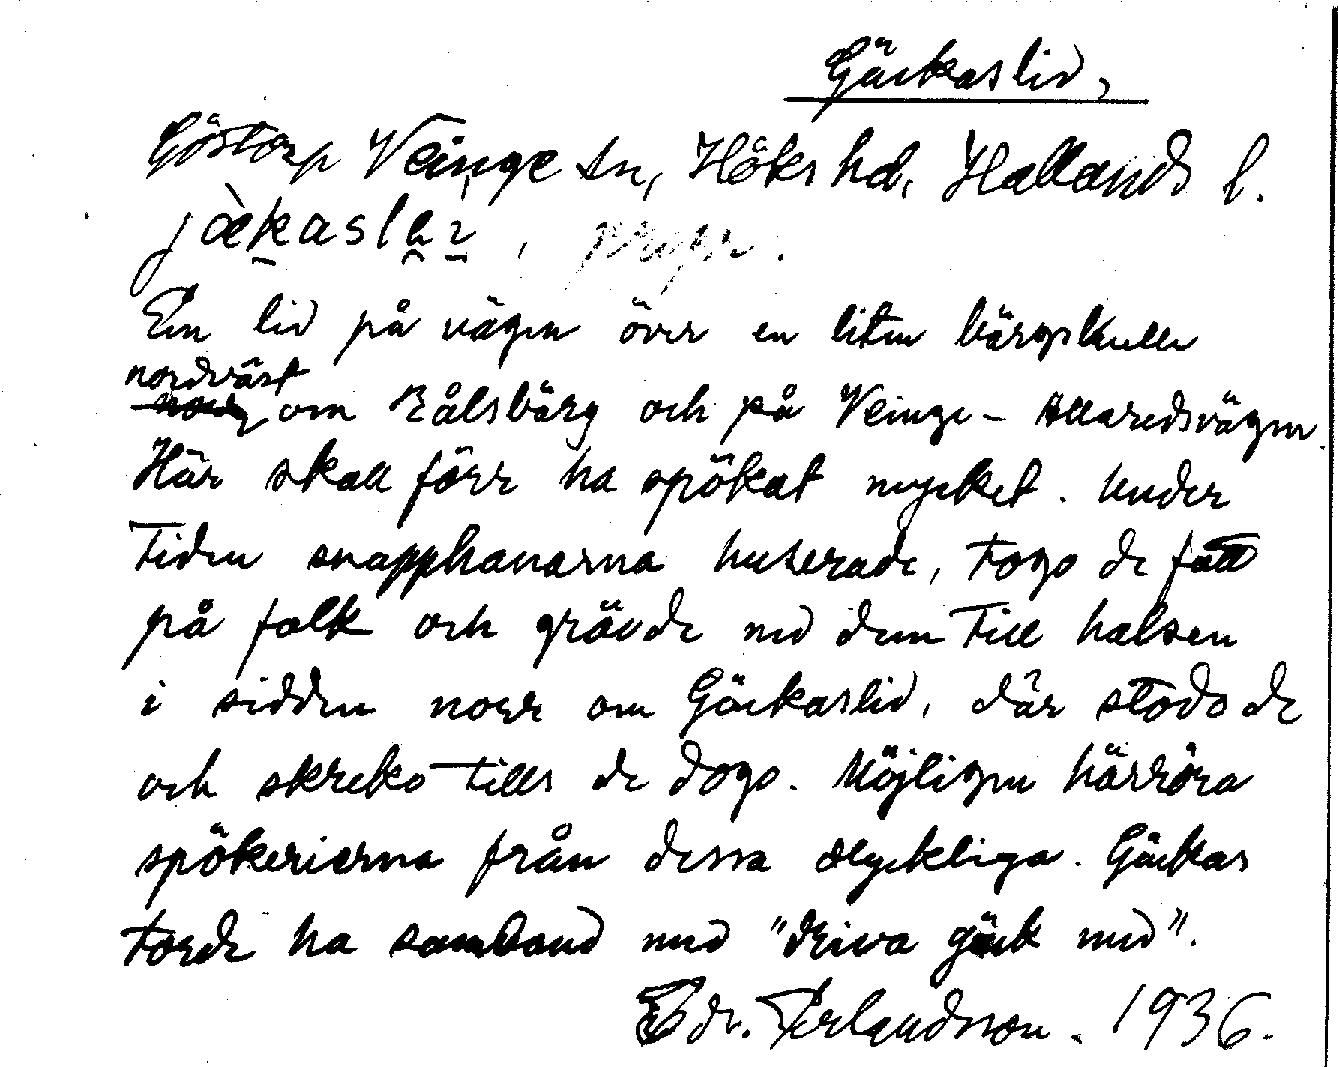 Gäckaslid,
Göstorp Veinge sn, Höks hd, Hallands l.
jækaslaɪ,
En lid på vägen över en liten bärgskulle
nordväst
om Bålsbärg och på Veinge - Allaredsvägen.
Här skall förr ha spökat mycket. Under
tiden snapphanarna huserade, togo de fatt
på folk och grävde ned dem till halsen
i sidden norr om Gäckaslid, där stodo de
och skreko tills de dogo. Möjligen härröra
spökerierna från dessa olyckliga. Gäckas
torde ha samband med "driva gäck med".
Edv. Erlandsson. 1936.